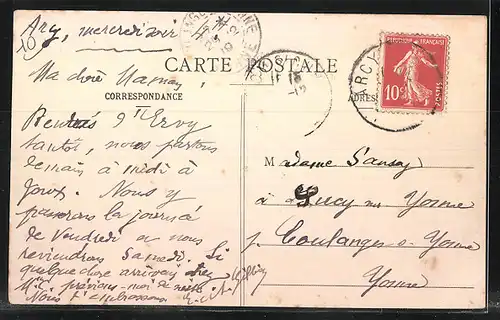 Arcy, mercredi soir
CARTE POSTALE
CORRESPONDANCE
ADRES
RÉPUBLIQUE FRANÇAISE
10c
POSTES
ARCY
Ma chère Maman,
tantôt, nous partons
demain à midi à
Joux. Nous y
passerons la journée
de Vendredi et nous
reviendrons Samedi. Si
quelque chose
prévions-moi de suite
Nous t'embrassons
M adame Sansoy
à Lucy sur Yonne
p. Coulanges s. Yonne
Yonne